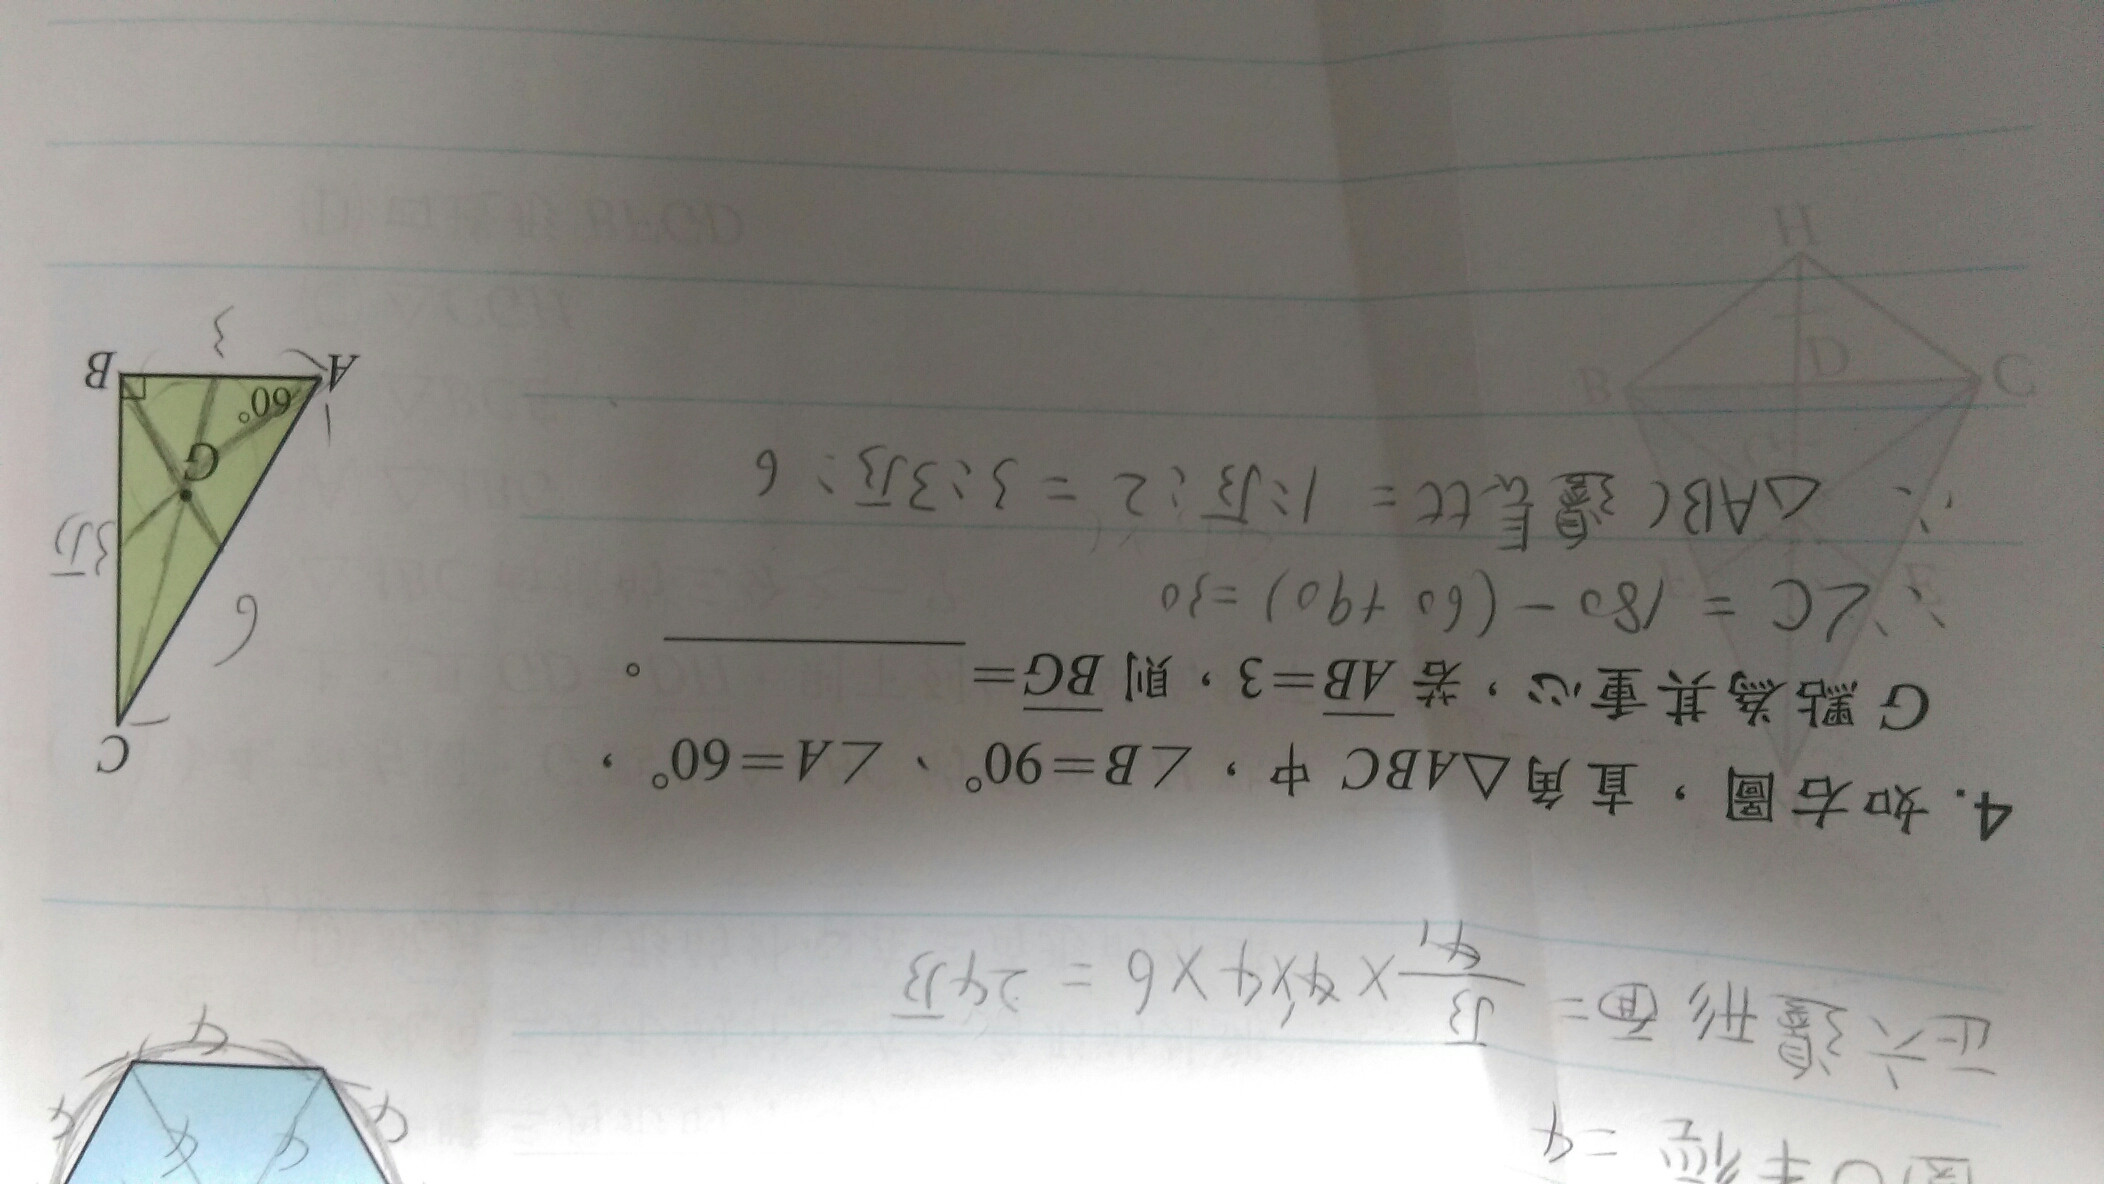 圓O半徑=4
正六邊形面= √3/4 × 4×4×6 = 24√3
4
4
4
4
4
4. 如右圖，直角△ABC 中，∠B=90°、∠A=60°，
G 點為其重心，若 AB=3，則 BG=＿＿＿＿＿。
∵∠C = 180 - (60+90) = 30
∴ △ABC 邊長比 = 1:√3:2 = 3:3√3:6
C
6
3√3
G
60°
A
B
3